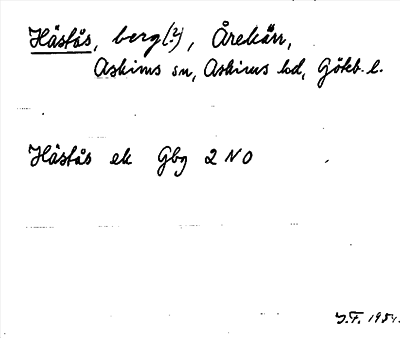 Håsås, berg(?), Årekärr,
Askims sn, Askims hd, Göteb. l.
Håsås ek Gbg 2 NO
J.F. 1954.